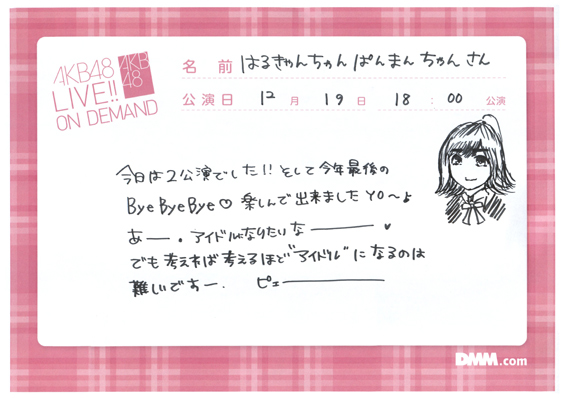 AKB48
LIVE!!
ON DEMAND
AKB
48
名前 はるきゃんちゃん ぱんまん ちゃん さん
公演日 12 月 19 日 18 : 00 公演
今日は2公演でした!! そして今年最後の
Bye Bye Bye♡ 楽しんで出来ましたYO〜♪
あー。アイドルになりたいなー♥
でも考えれば考えるほど"アイドル"になるのは
難しいですー. ピェー
DMM.com